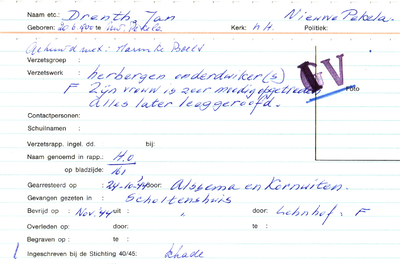 Naam etc.: Drenth, Jan Nieuwe Pekela.
Geboren: 20.6.900 te Kerk: N.H. Politiek:
Gehuwd met: Harmke
Verzetsgroep :
Verzetswerk : herbergen onderduiker(s)
F Zijn vrouw is zeer moedig opgetreden
Alles later leeggeroofd.
GV
Foto
Contactpersonen:
Schuilnaam :
Verzetsrapp, ingel. dd. bij:
Naam genoemd in rapp.: H.O
op bladzijde: 161
Gearresteerd op : 24-10-'44 door: Alssema en Kornuiten.
Gevangen gezeten in : Scholtenshuis
Bevrijd op : Nov. '44 uit : " door: Lehnhof. F
Overleden op: door: te :
Begraven op : te :
Ingeschreven bij de Stichting 40/45: schade